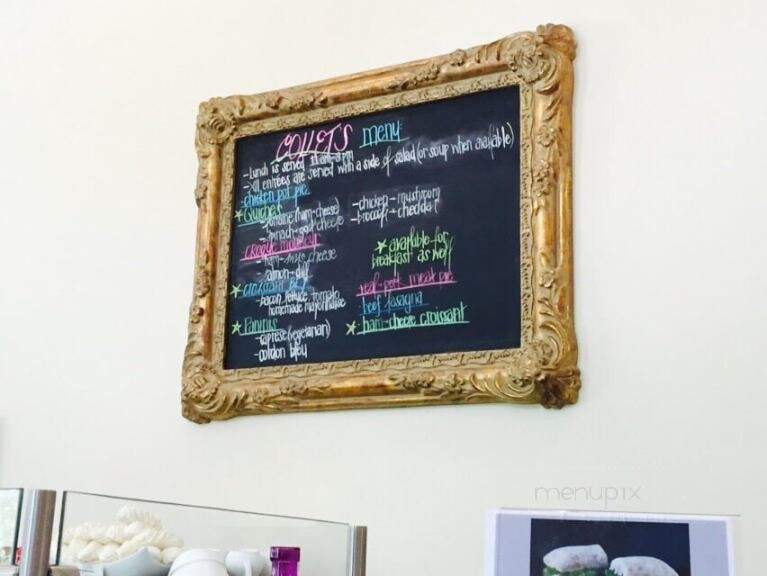 COLLETS menu
- Lunch is served 11am-3pm
- All entrees are served with a side of salad (or soup when available)
chicken pot pie
* Quiches
- lorraine (ham-cheese)
- spinach-goat cheese
- chicken-mushroom
- broccoli-cheddar
croque monsieur
- ham-swiss cheese
- salmon-dill
* available for
breakfast as well
* croissant BLT
- bacon, lettuce, tomato
homemade mayonnaise
* Paninis
- caprese (vegetarian)
- cordon bleu
veal-pork meat pie
beef lasagna
* ham-cheese croissant
menupix